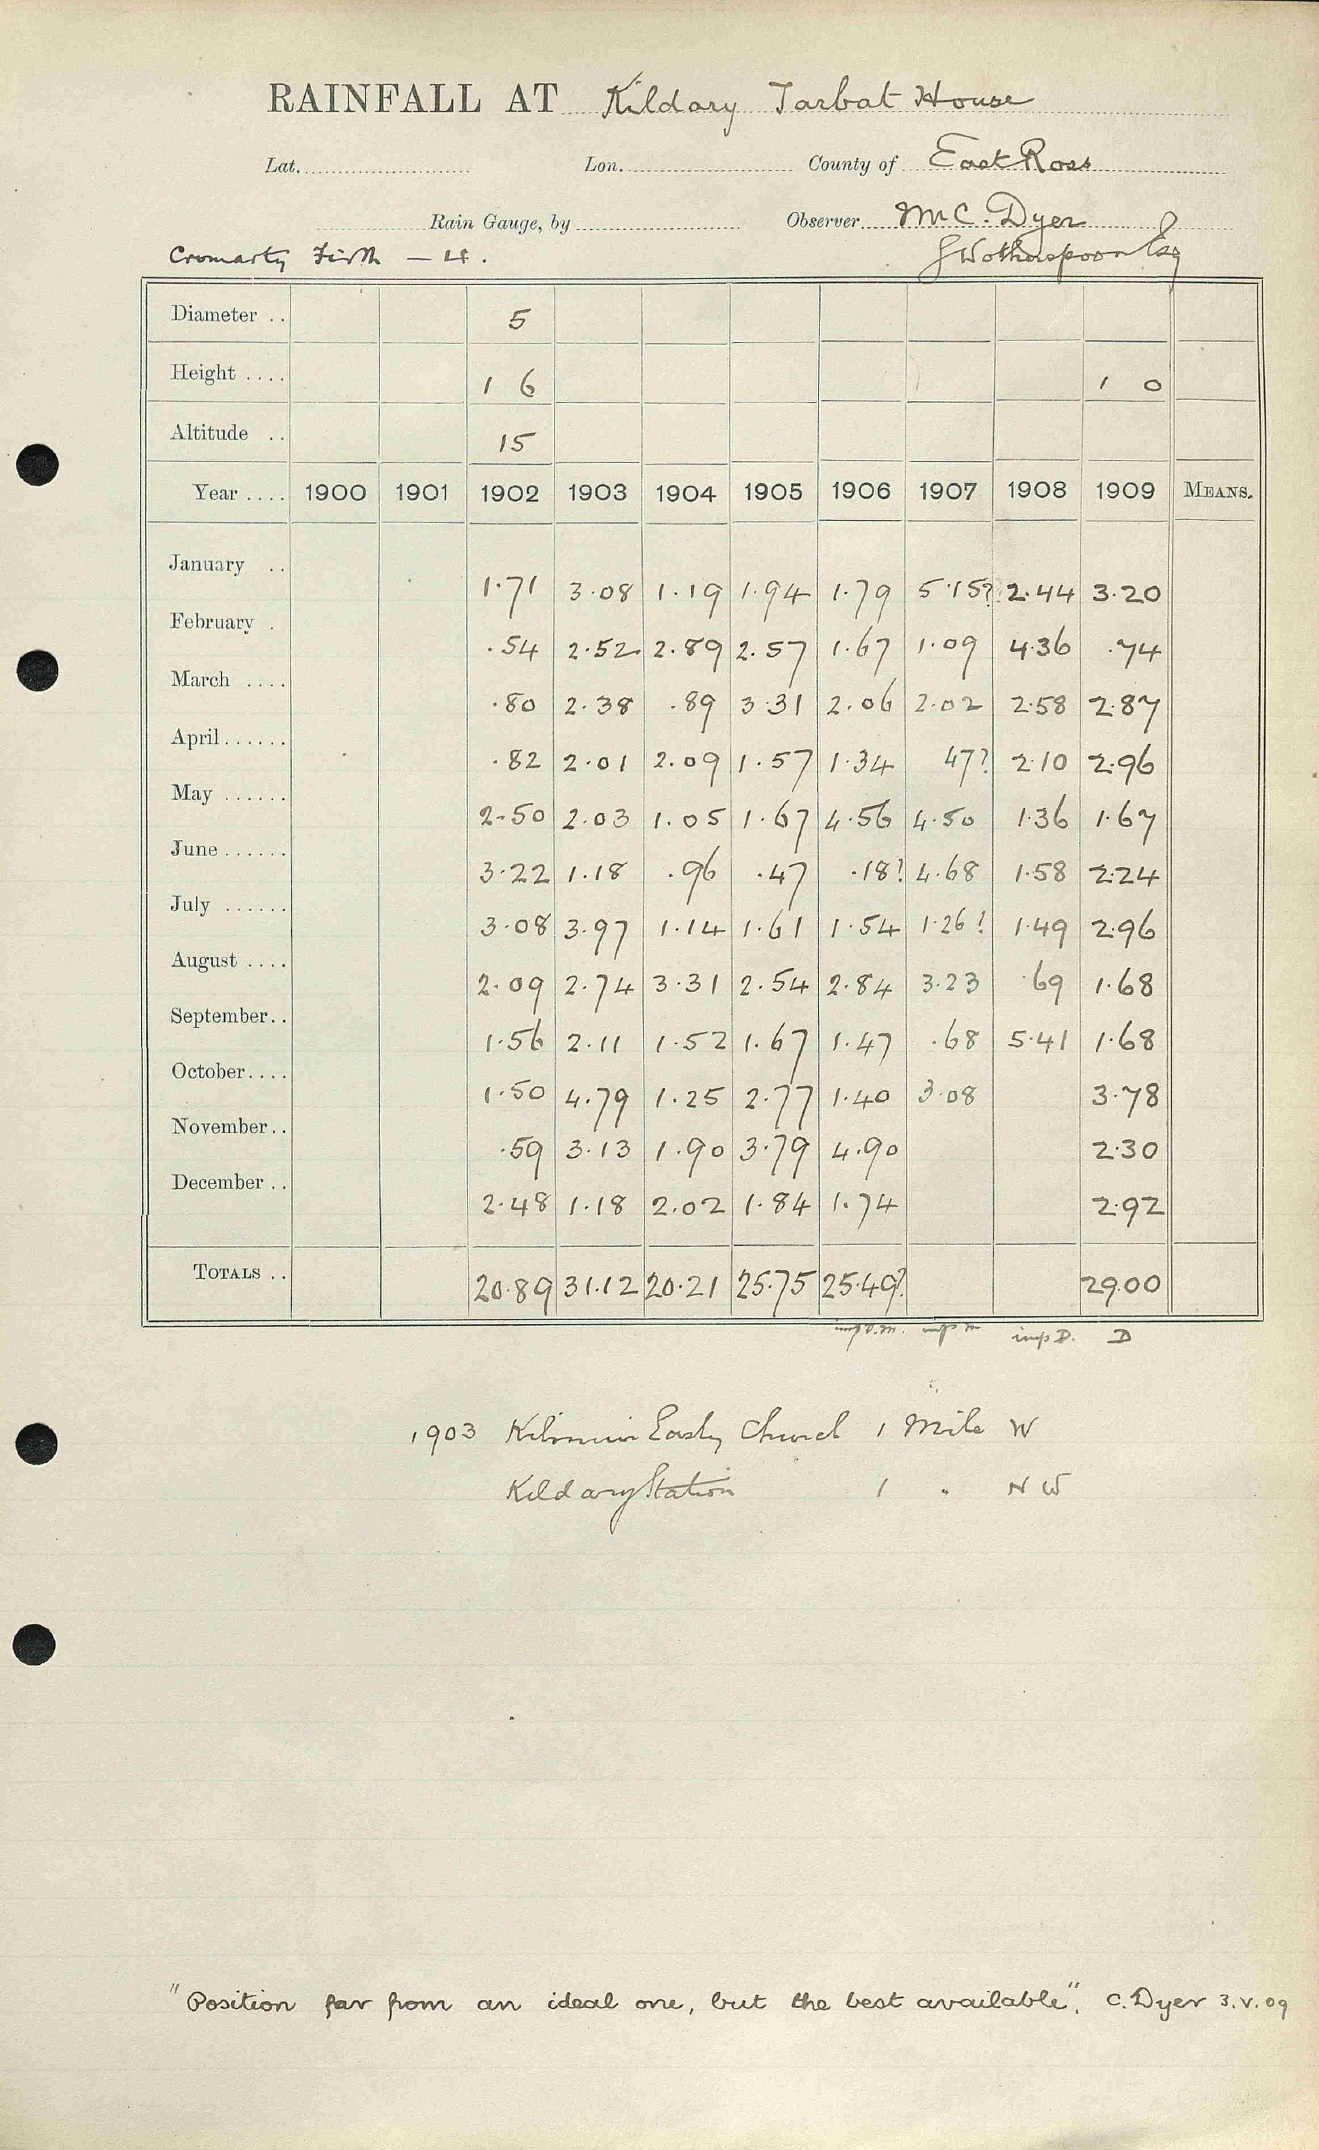 RAINFALL AT Kildary Tarbat House
Lat. Lon. County of East Ross
Rain Gauge, by Observer Mr C. Dyer
Cromarty Firth — 4. J Wotherspoon Esq
Diameter .. 5
Height .... 1 6 1 0
Altitude .. 15
Year .... 1900 1901 1902 1903 1904 1905 1906 1907 1908 1909 MEANS.
January .. 1.71 3.08 1.19 1.94 1.79 5.15? 2.44 3.20
February . .54 2.52 2.89 2.57 1.67 1.09 4.36 .74
March .... .80 2.38 .89 3.31 2.06 2.02 2.58 2.87
April ...... .82 2.01 2.09 1.57 1.34 47? 2.10 2.96
May ...... 2.50 2.03 1.05 1.67 4.56 4.50 1.36 1.67
June ...... 3.22 1.18 .96 .47 .18? 4.68 1.58 2.24
July ...... 3.08 3.97 1.14 1.61 1.54 1.26? 1.49 2.96
August .... 2.09 2.74 3.31 2.54 2.84 3.23 .69 1.68
September.. 1.56 2.11 1.52 1.67 1.47 .68 5.41 1.68
October.... 1.50 4.79 1.25 2.77 1.40 3.08 3.78
November.. .59 3.13 1.90 3.79 4.90 2.30
December .. 2.48 1.18 2.02 1.84 1.74 2.92
TOTALS .. 20.89 31.12 20.21 25.75 25.49? 29.00
imp D.M. imp M imp D. D
1903 Kilmuir Easter Church 1 Mile W
Kildary Station 1 " N W
"Position far from an ideal one, but the best available". C. Dyer 3.V.09